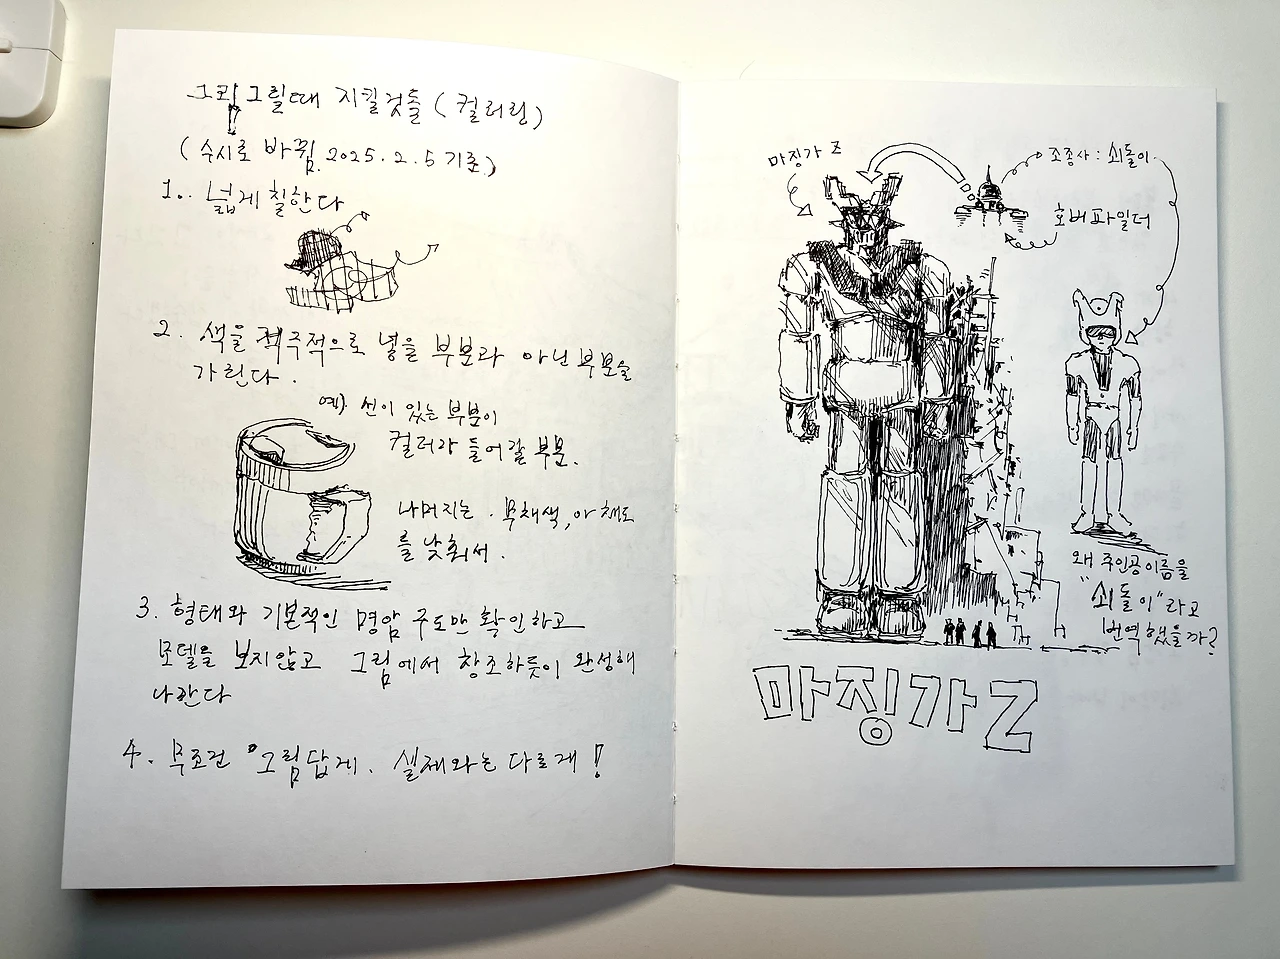 그림 그릴때 지킬것들 (컬러링)
(수시로 바뀜. 2025. 2. 5 기준)
1. 넓게 칠한다
2. 색을 적극적으로 넣을 부분과 아닌 부분을
가린다.
예). 선이 있는 부분이
컬러가 들어갈 부분.
나머지는. 무채색, 아 채도
를 낮춰서.
3. 형태와 기본적인 명암 구도만 확인하고
모델을 보지않고 그림에서 창조하듯이 완성해
나간다
4. 무조건 그림답게. 실제와는 다르게!
마징가 Z
조종사: 쇠돌이.
호버파일더
왜 주인공이름을
"쇠돌이"라고
번역했을까?
마징가Z